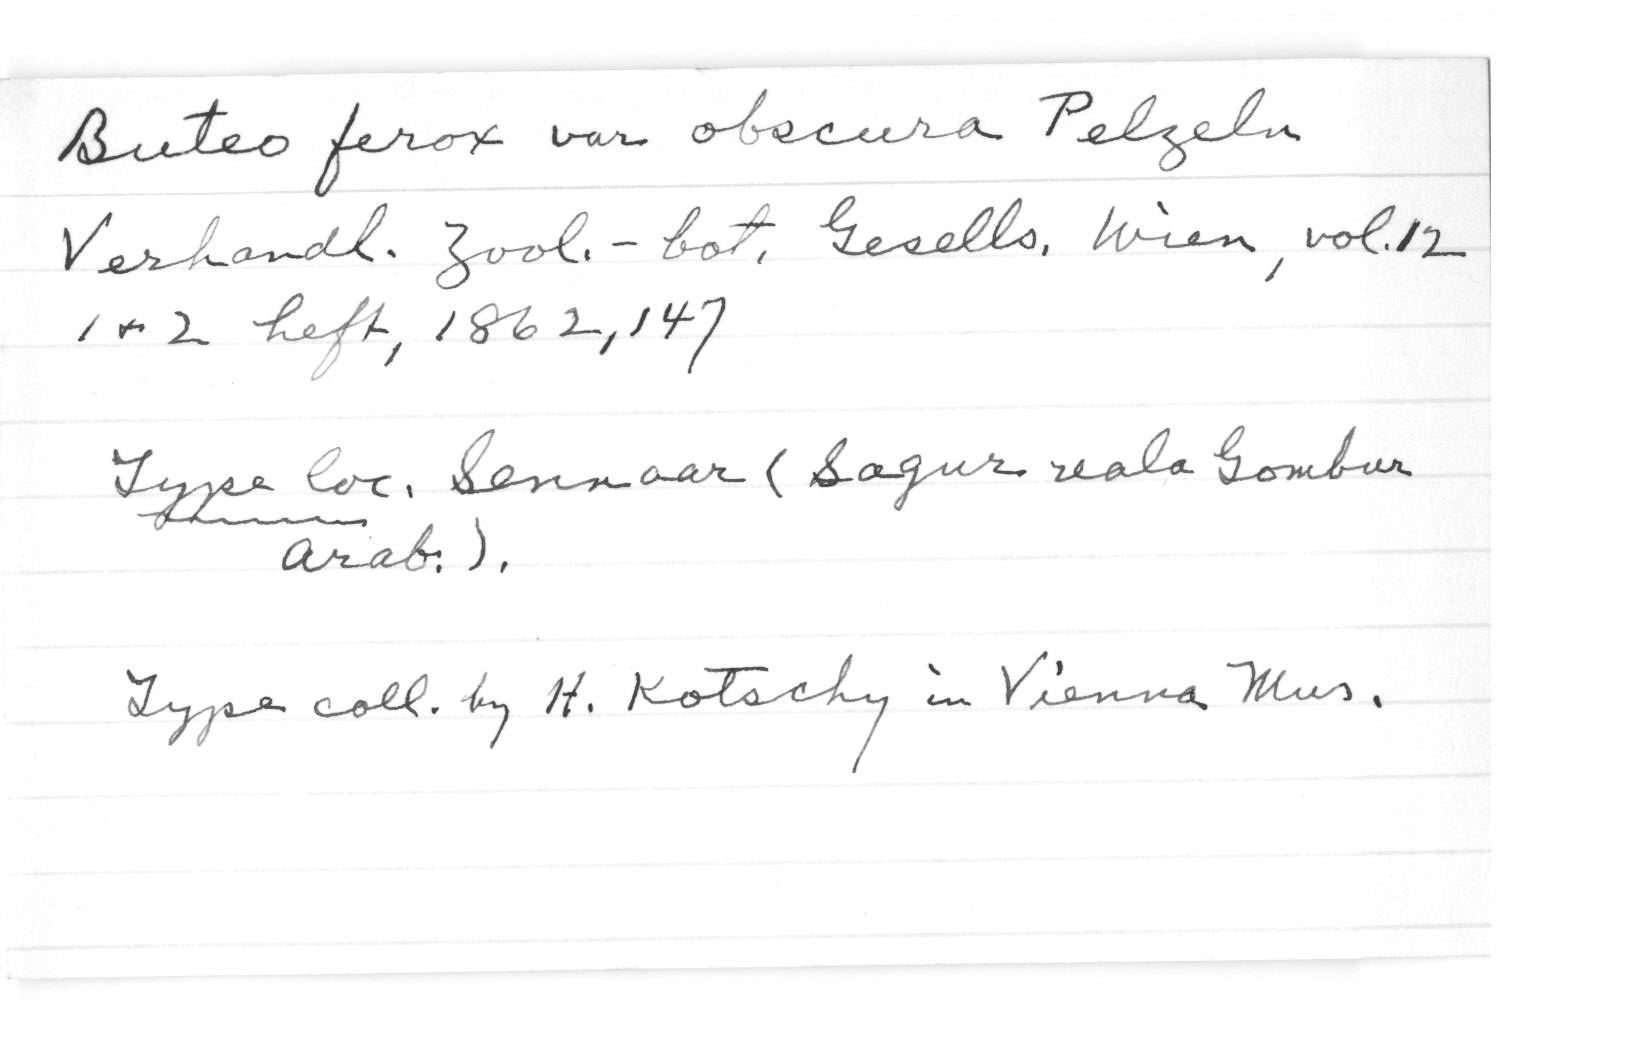 Buteo ferox var obscura Pelzeln
Verhandl. Zool.-bot. Gesells. Wien, vol. 12
1+2 heft, 1862, 147
Type loc. Sennaar (Sagur reala Gombur
Arab.).
Type coll. by H. Kotschy in Vienna Mus.